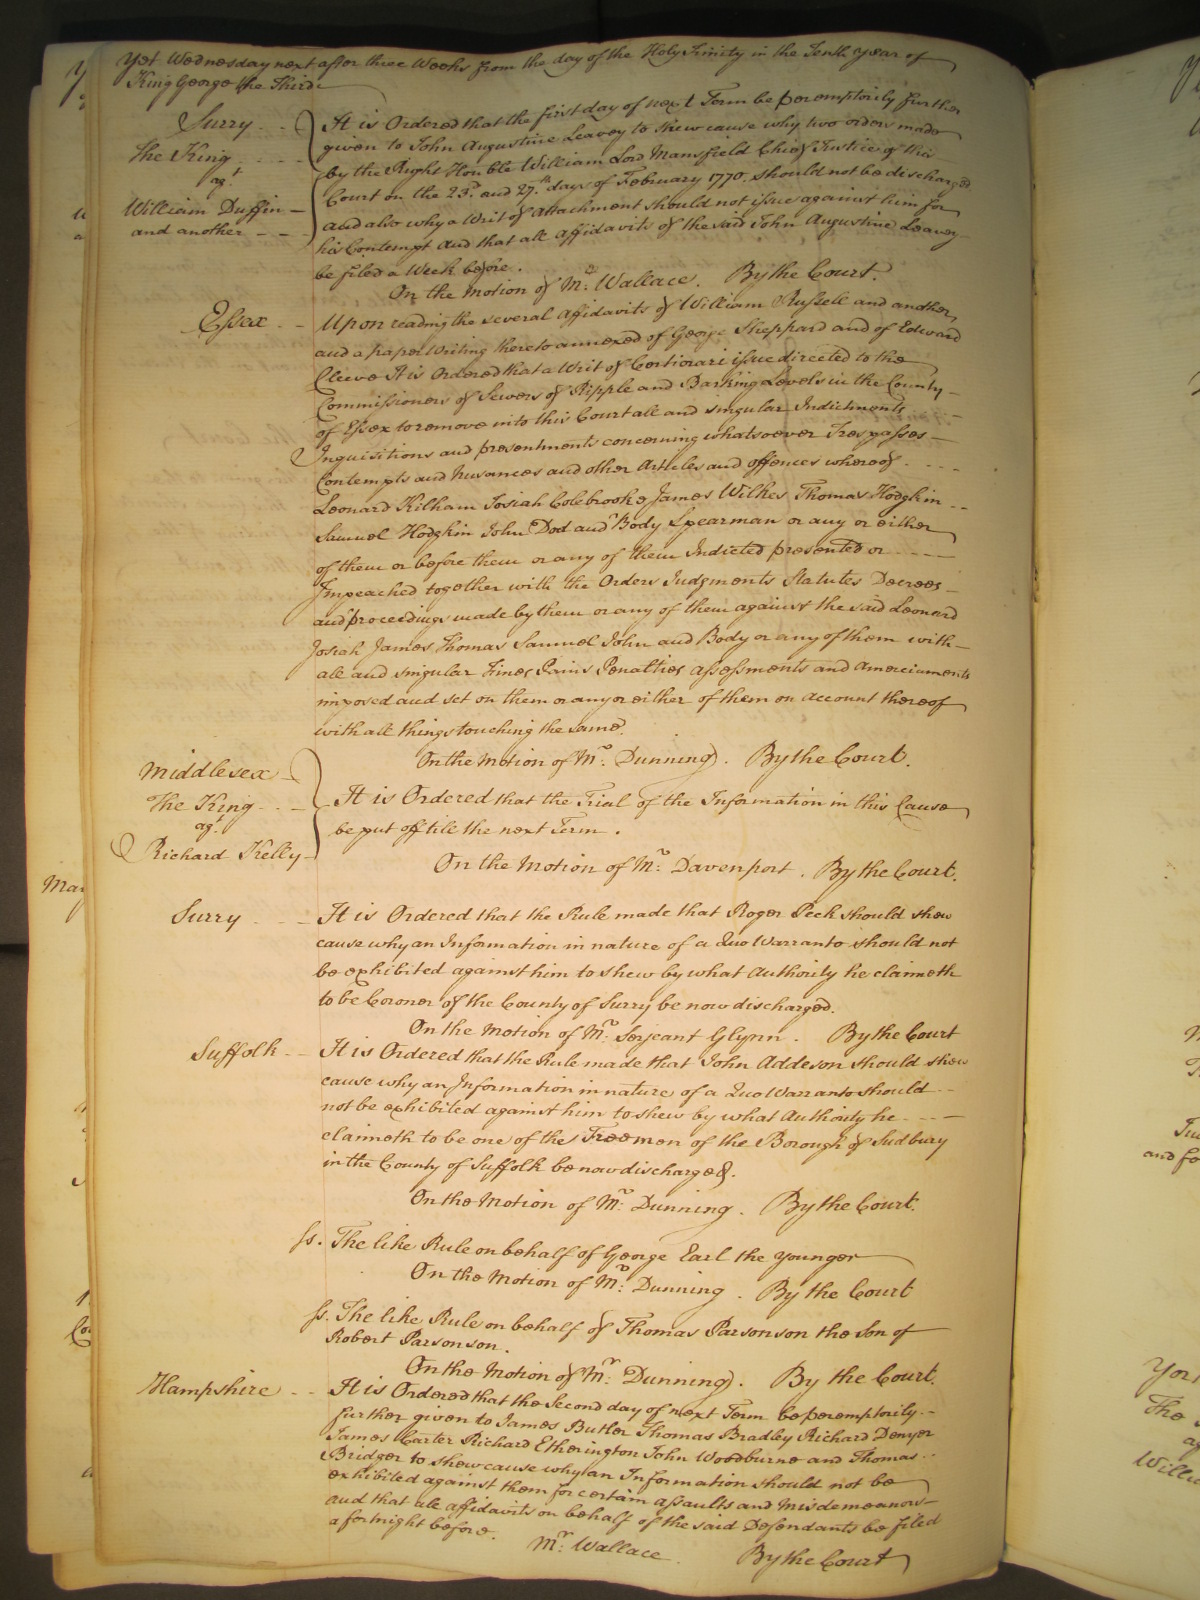 Yet Wednesday next after three Weeks from the day of the Holy Trinity in the Tenth Year of
King George the Third
Surry
The King
agt
William Duffin
and another
It is Ordered that the first day of next Term be peremptorily further
given to John Augustine Leavey to shew cause why two orders made
by the Right Honble William Lord Mansfield Chief Justice of this
Court on the 23d and 27th days of February 1770 should not be discharged
and also why a Writ of Attachment should not issue against him for
his Contempt And that all affidavits of the said John Augustine Leavey
be filed a Week before.
On the Motion of Mr Wallace. By the Court.
Essex
Upon reading the several Affidavits of William Russell and another
and a paper Writing thereto annexed of George Sheppard and of Edward
Cleeve It is Ordered that a Writ of Certiorari issue directed to the
Commissioners of Sewers of Ripple and Barking Levels in the County
of Essex to remove into this Court all and singular Indictments
Inquisitions and presentments concerning whatsoever Trespasses
Contempts and Nusances and other Articles and offences whereof
Leonard Kilham Josiah Colebrooke James Wilkes Thomas Hodgkin
Samuel Hodgkin John Dod and Body Spearman or any or either
of them or before them or any of them Indicted presented or
Impeached together with the Orders Judgments Statutes Decrees
and proceedings made by them or any of them against the said Leonard
Josiah James Thomas Samuel John and Body or any of them with
all and singular Fines Pains Penalties assessments and Amerciaments
imposed and set on them or any or either of them on account thereof
with all things touching the same.
On the Motion of Mr Dunning. By the Court.
Middlesex
The King
agt
Richard Kelly
It is Ordered that the Trial of the Information in this Cause
be put off till the next Term.
On the Motion of Mr Davenport. By the Court.
Surry
It is Ordered that the Rule made that Roger Peck should shew
cause why an Information in nature of a Quo Warranto should not
be exhibited against him to shew by what Authority he claimeth
to be Coroner of the County of Surry be now discharged.
On the Motion of Mr Serjeant Glynn. By the Court
Suffolk
It is Ordered that the Rule made that John Addeson should shew
cause why an Information in nature of a Quo Warranto should
not be exhibited against him to shew by what Authority he
claimeth to be one of the Freemen of the Borough of Sudbury
in the County of Suffolk be now discharged.
On the Motion of Mr Dunning. By the Court.
ss. The like Rule on behalf of George Earl the younger
On the Motion of Mr Dunning. By the Court
ss. The like Rule on behalf of Thomas Parsonson the Son of
Robert Parsonson.
On the Motion of Mr Dunning. By the Court.
Hampshire
It is Ordered that the Second day of next Term be peremptorily
further given to James Butler Thomas Bradley Richard Denyer
James Carter Richard Etherington John Woodburne and Thomas
Bridger to shew cause why an Information should not be
exhibited against them for certain assaults and Misdemeanors
and that all affidavits on behalf of the said Defendants be filed
a fortnight before.
Mr Wallace. By the Court